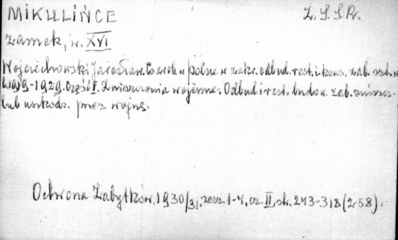 MIKULIŃCE Z.S.S.R.
zamek, w. XVI
Wojciechowski Jarosław. w polsce w zakr. odbud. rest. i kons. zab. szt. w
1919-1929. Część I. Zniszczenia wojenne. Odbud. i rest. budow. zab. zniszcz.
lub uszkodz. przez wojnę.
Ochrona Zabytków, 1930/31, zesz. 1-4, cz. II, str. 243-318 (258).